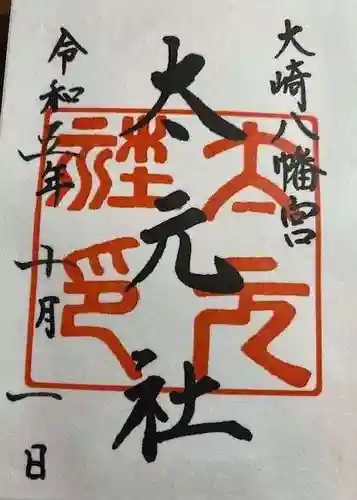 大崎八幡宮
太元社
太元社印
令和五年十月一日